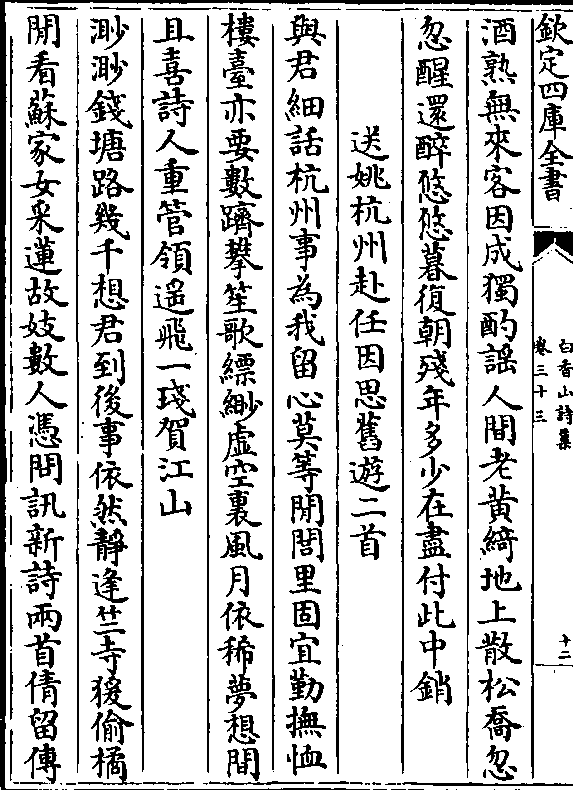 欽定四庫全書
白香山詩集
卷三十三
十二
酒熟無來客因成獨酌謡人間老黄綺地上散松喬忽
忽醒還醉悠悠暮復朝殘年多少在盡付此中銷
送姚杭州赴任因思舊遊二首
與君細話杭州事為我留心莫等閒閭里固宜勤撫恤
樓臺亦要數躋攀笙歌縹緲虛空裏風月依稀夢想間
且喜詩人重管領遥飛一琖賀江山
渺渺錢塘路幾千想君到後事依然靜逢竺寺猨偷橘
閒看蘇家女采蓮故妓數人憑問訊新詩兩首倩留傳